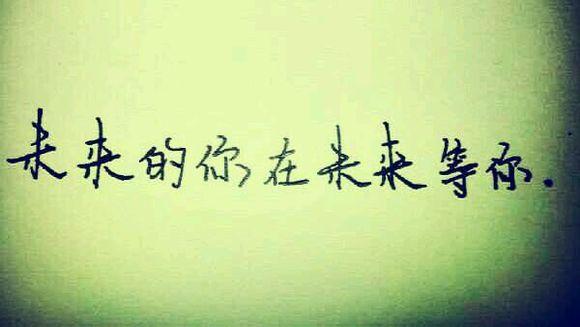 未来的你在未来等你.